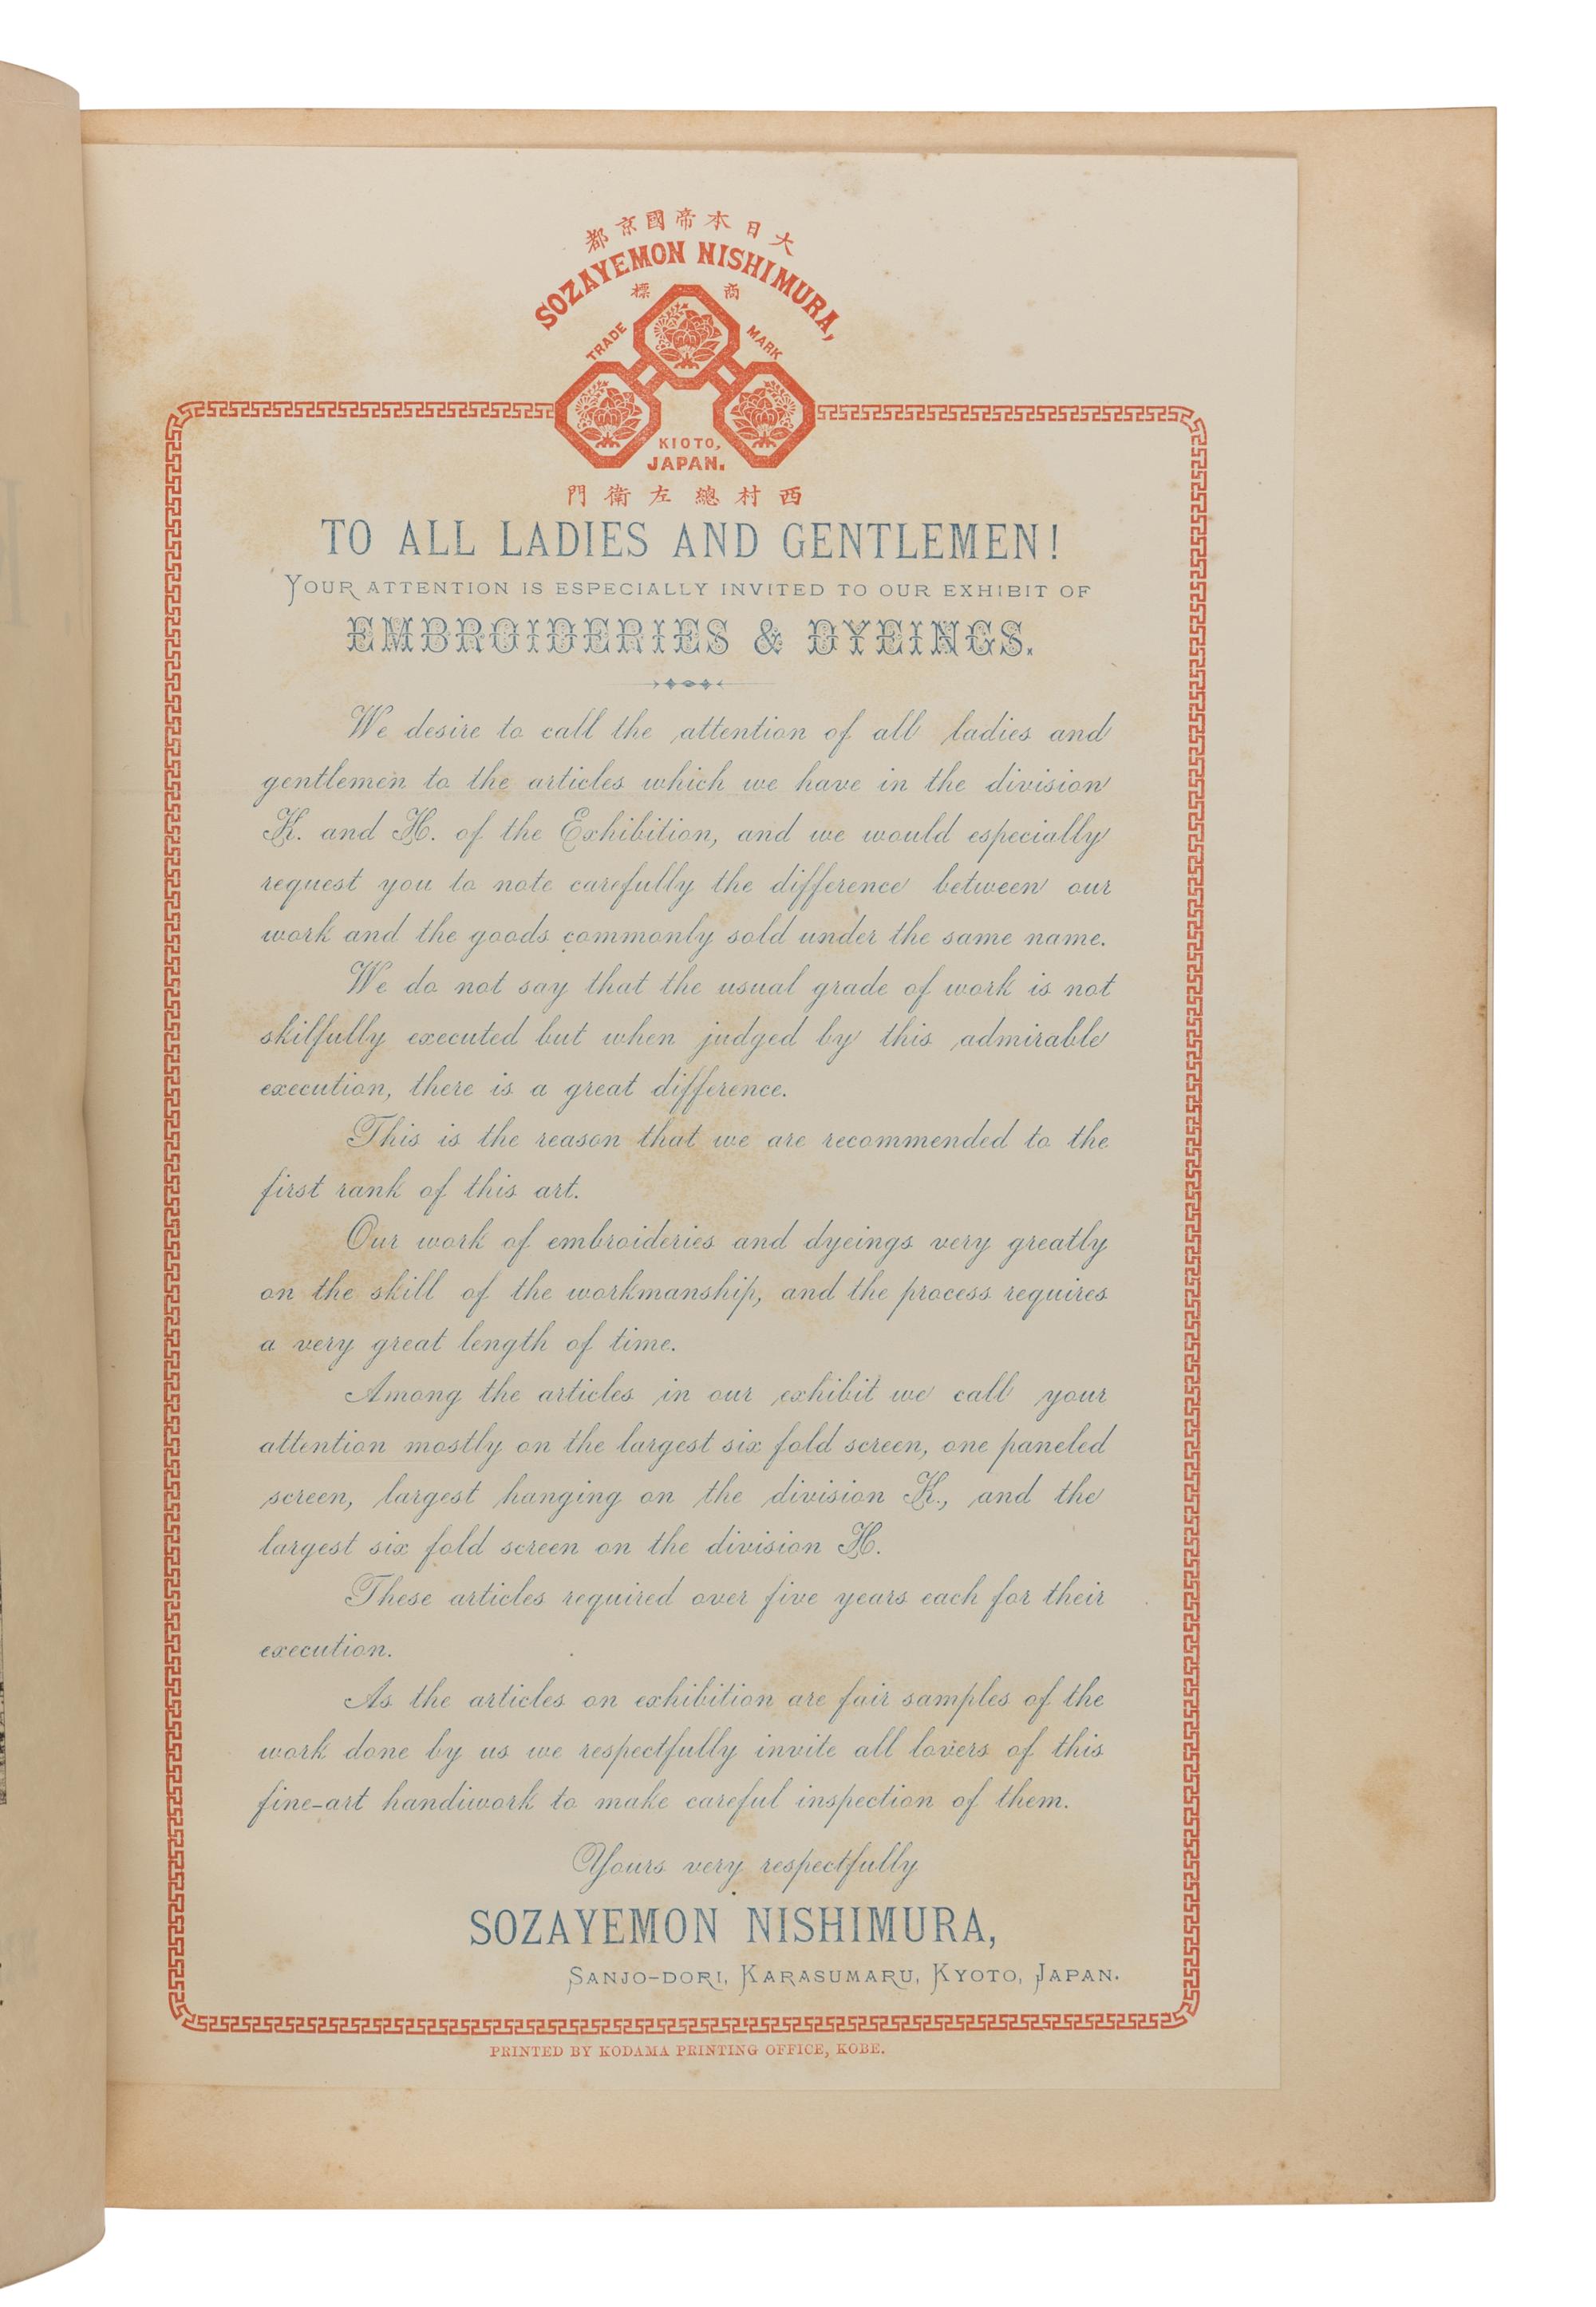 大日本帝國京都
SOZAYEMON NISHIMURA,
商標
TRADE MARK
KIOTO,
JAPAN.
西村總左衛門
TO ALL LADIES AND GENTLEMEN!
YOUR ATTENTION IS ESPECIALLY INVITED TO OUR EXHIBIT OF
EMBROIDERIES & DYEINGS.
We desire to call the attention of all ladies and
gentlemen to the articles which we have in the division
K. and H. of the Exhibition, and we would especially
request you to note carefully the difference between our
work and the goods commonly sold under the same name.
We do not say that the usual grade of work is not
skilfully executed but when judged by this admirable
execution, there is a great difference.
This is the reason that we are recommended to the
first rank of this art.
Our work of embroideries and dyeings very greatly
on the skill of the workmanship, and the process requires
a very great length of time.
Among the articles in our exhibit we call your
attention mostly on the largest six fold screen, one paneled
screen, largest hanging on the division K., and the
largest six fold screen on the division H.
These articles required over five years each for their
execution.
As the articles on exhibition are fair samples of the
work done by us we respectfully invite all lovers of this
fine-art handiwork to make careful inspection of them.
Yours very respectfully
SOZAYEMON NISHIMURA,
SANJO-DORI, KARASUMARU, KYOTO, JAPAN.
PRINTED BY KODAMA PRINTING OFFICE, KOBE.